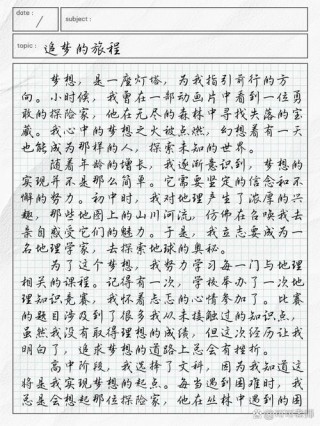 date:
/
subject:
topic: 追梦的旅程
梦想，是一座灯塔，为我指引前行的方
向。小时候，我曾在一部动画片中看到一位勇
敢的探险家，他在无尽的森林中寻找失落的宝
藏。我心中的梦想之火被点燃，幻想着有一天
也能成为那样的人，探索未知的世界。
随着年龄的增长，我逐渐意识到，梦想的
实现并不是那么简单。它需要坚定的信念和不
懈的努力。初中时，我对地理产生了浓厚的兴
趣，那些地图上的山川河流，仿佛在召唤我去
亲自感受它们的魅力。于是，我立志要成为一
名地理学家，去探索地球的奥秘。
为了这个梦想，我努力学习每一门与地理
相关的课程。记得有一次，学校举办了一次地
理知识竞赛，我怀着忐忑的心情参加了。比赛
的题目涉及到了很多我从未接触过的知识点，
虽然我没有取得理想的成绩，但这次经历让我
明白了，追求梦想的道路上总会有挫折。
高中阶段，我选择了文科，因为我知道这
将是我实现梦想的起点。每当遇到困难时，我
总是会想起那位探险家，他在丛林中遇到的困